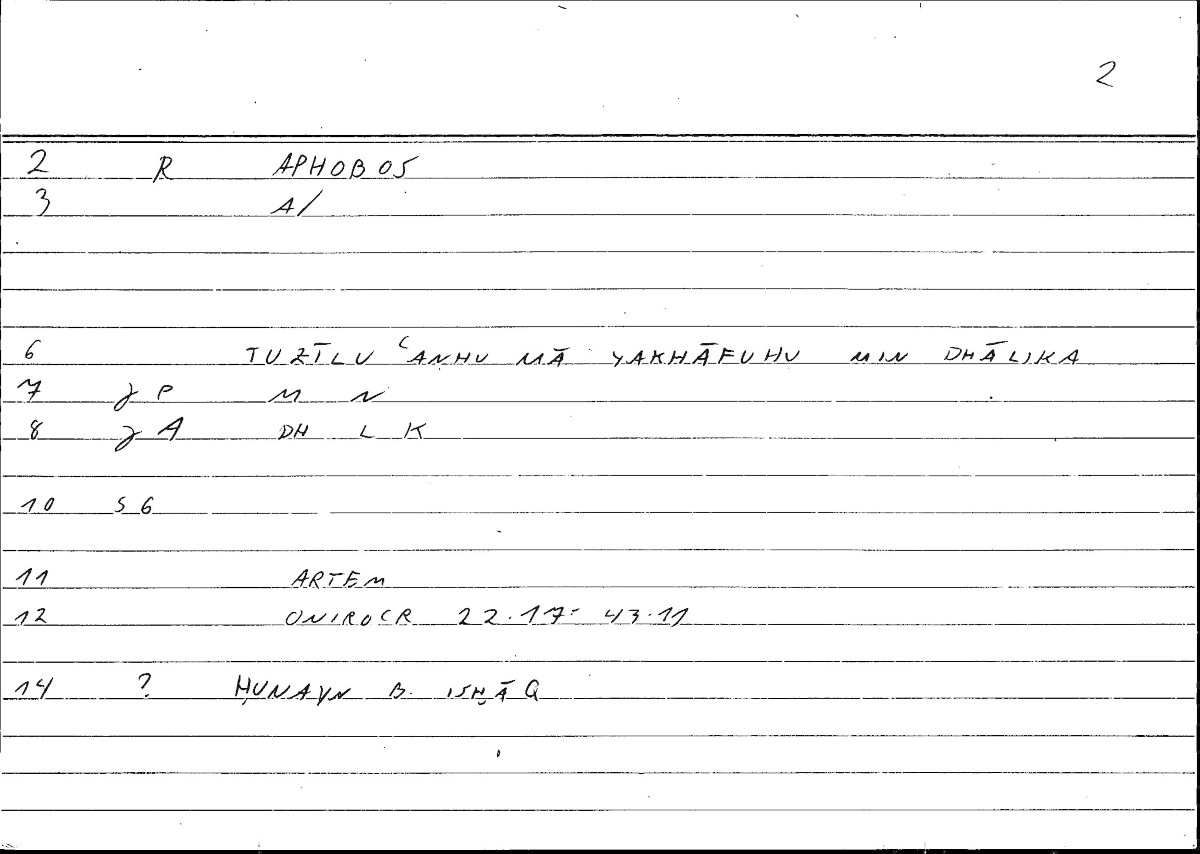 2
2 R APHOBOS
3 A/
6 TUZĪLU ʿANHU MĀ YAKHĀFUHU MIN DHĀLIKA
7 γ P M N
8 γ A DH L K
10 S 6
11 ARTEM
12 ONIROCR 22.17= 43.11
14 ? ḤUNAYN B. ISḤĀQ